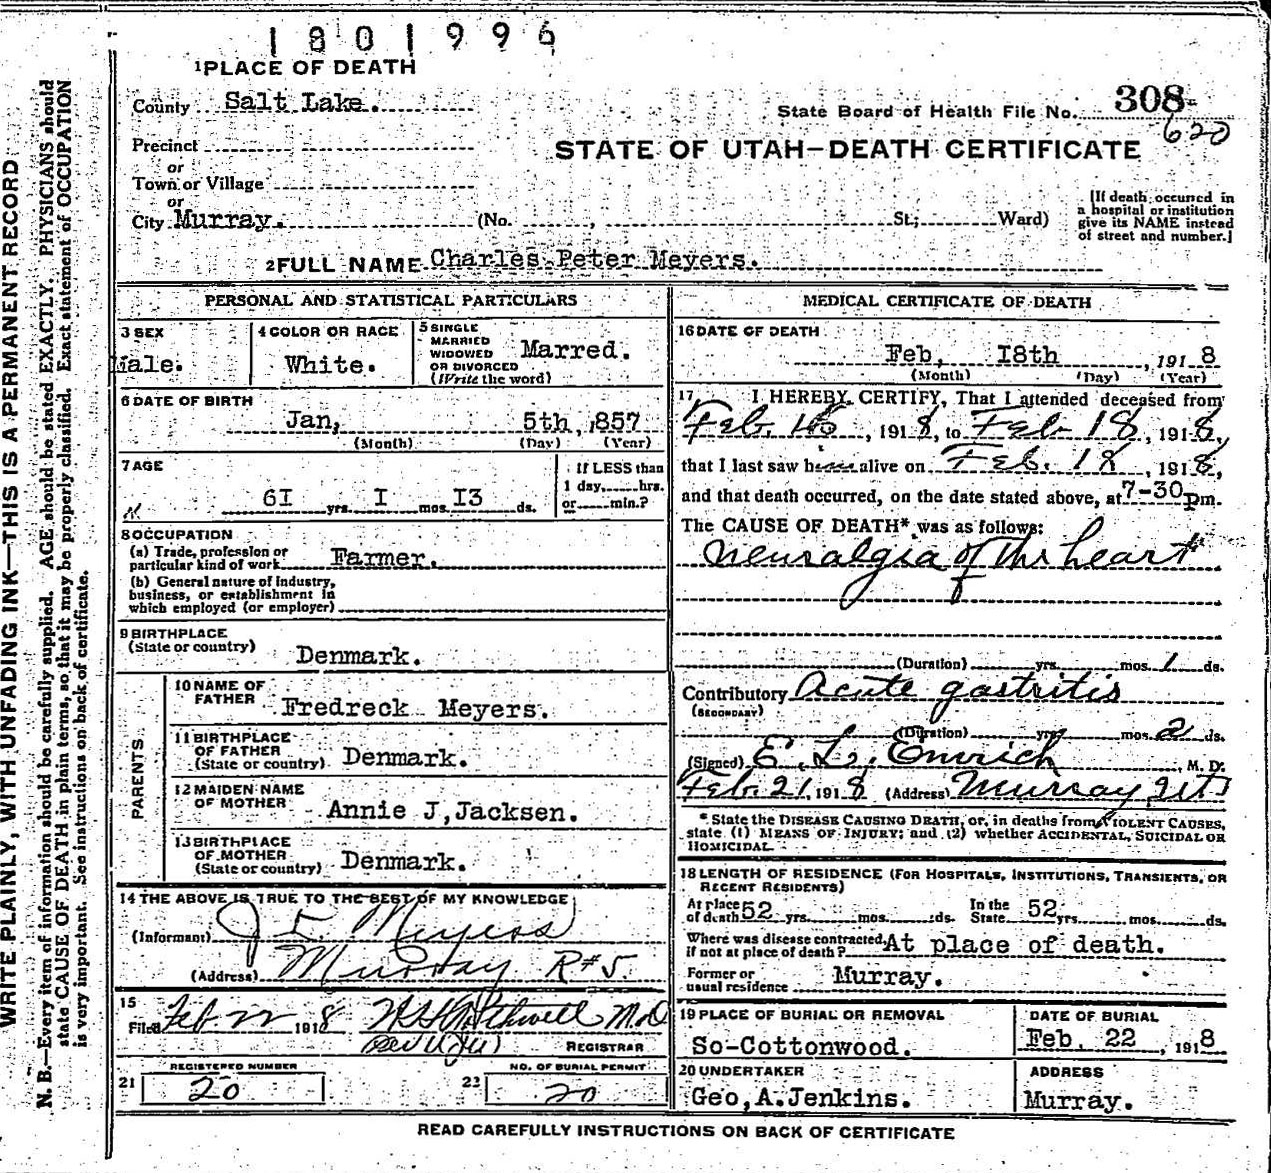 1801996
1 PLACE OF DEATH
County Salt Lake.
State Board of Health File No. 308-
620
Precinct
STATE OF UTAH—DEATH CERTIFICATE
or
Town or Village
or
City Murray. (No. , St; Ward)
[If death occurred in
a hospital or institution
give its NAME instead
of street and number.]
2 FULL NAME Charles Peter Meyers.
PERSONAL AND STATISTICAL PARTICULARS
3 SEX
Male.
4 COLOR OR RACE
White.
5 SINGLE
MARRIED
WIDOWED
OR DIVORCED
(Write the word)
Marred.
6 DATE OF BIRTH
Jan, 5th, 857
(Month) (Day) (Year)
7 AGE
6I yrs. I mos. I3 ds.
If LESS than
1 day, hrs.
or min.?
8 OCCUPATION
(a) Trade, profession or
particular kind of work Farmer.
(b) General nature of industry,
business, or establishment in
which employed (or employer)
9 BIRTHPLACE
(State or country)
Denmark.
PARENTS
10 NAME OF
FATHER
Fredreck Meyers.
11 BIRTHPLACE
OF FATHER
(State or country) Denmark.
12 MAIDEN NAME
OF MOTHER
Annie J,Jacksen.
13 BIRTHPLACE
OF MOTHER
(State or country) Denmark.
14 THE ABOVE IS TRUE TO THE BEST OF MY KNOWLEDGE
(Informant) J L Meyers
(Address) Murray R#5.
15
Filed Feb 22 1918
M.D
REGISTRAR
REGISTERED NUMBER
21 20
NO. OF BURIAL PERMIT
22 20
MEDICAL CERTIFICATE OF DEATH
16 DATE OF DEATH
Feb, I8th , 1918
(Month) (Day) (Year)
17 I HEREBY CERTIFY, That I attended deceased from
Feb. 16 , 1918, to Feb 18, 1918,
that I last saw him alive on Feb. 18 , 1918,
and that death occurred, on the date stated above, at 7-30 pm.
The CAUSE OF DEATH* was as follows:
Neuralgia of the heart
(Duration) yrs. mos. 1 ds.
Contributory Acute gastritis
(SECONDARY)
(Duration) yrs mos. 2 ds.
(Signed) E. L. Emrich , M. D.
Feb. 21, 1918 (Address) Murray, Ut
* State the DISEASE CAUSING DEATH, or, in deaths from VIOLENT CAUSES,
state (1) MEANS OF INJURY; and (2) whether ACCIDENTAL, SUICIDAL OR
HOMICIDAL.
18 LENGTH OF RESIDENCE (FOR HOSPITALS, INSTITUTIONS, TRANSIENTS, OR
RECENT RESIDENTS)
At place
of death 52 yrs. mos. ds.
In the
State 52 yrs. mos. ds.
Where was disease contracted
if not at place of death? At place of death.
Former or
usual residence Murray.
19 PLACE OF BURIAL OR REMOVAL
So-Cottonwood.
DATE OF BURIAL
Feb. 22 , 1918
20 UNDERTAKER
Geo,A.Jenkins.
ADDRESS
Murray.
READ CAREFULLY INSTRUCTIONS ON BACK OF CERTIFICATE
WRITE PLAINLY, WITH UNFADING INK—THIS IS A PERMANENT RECORD
N. B.—Every item of information should be carefully supplied. AGE should be stated EXACTLY. PHYSICIANS should
state CAUSE OF DEATH in plain terms, so that it may be properly classified. Exact statement of OCCUPATION
is very important. See instructions on back of certificate.